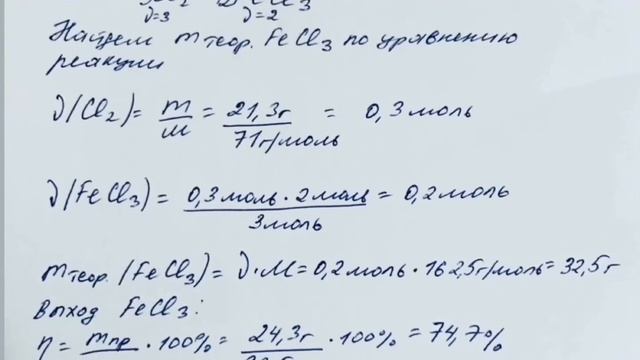 ν=3 ν=2
Найдем m теор. FeCl3 по уравнению
реакции
ν(Cl2) = m/M = 21,3г/71г/моль = 0,3 моль
ν(FeCl3) = 0,3 моль · 2 моль/3 моль = 0,2 моль
m теор. (FeCl3) = ν·M = 0,2 моль · 162,5 г/моль = 32,5 г
Выход FeCl3:
η = mпр · 100% = 24,3г · 100% = 74,7%